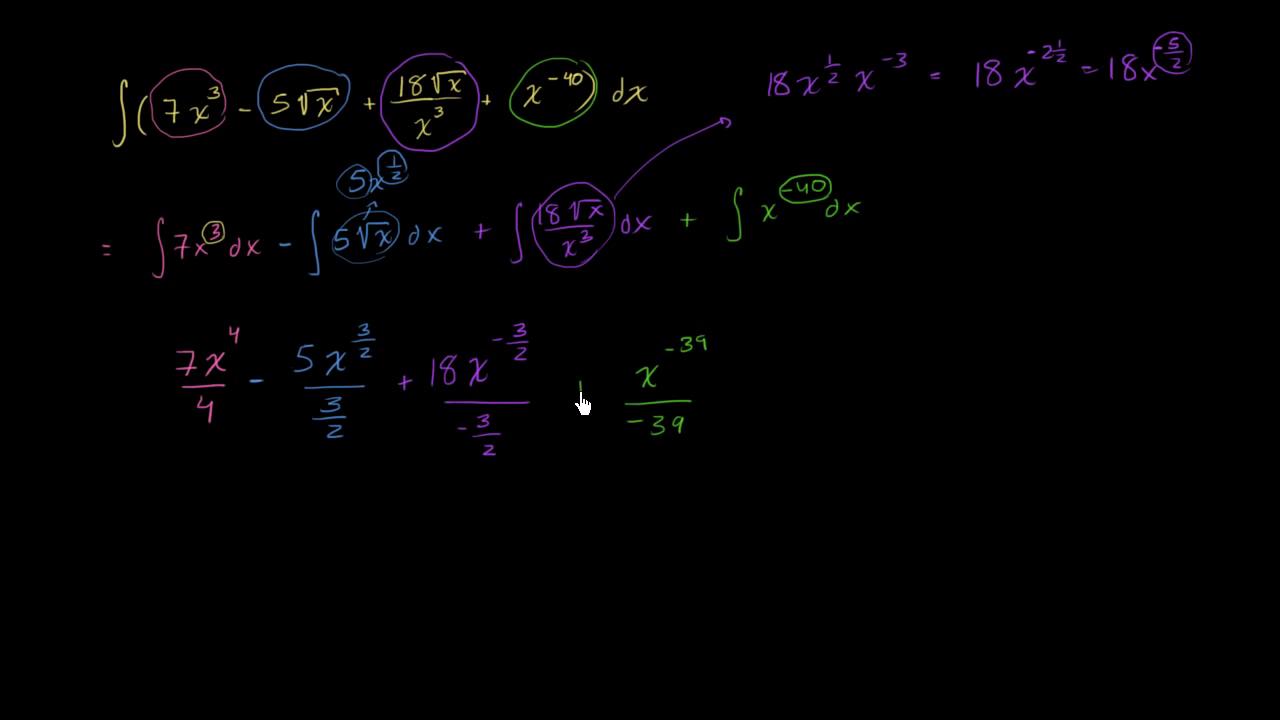 ∫(7x³ - 5√x + 18√x/x³ + x⁻⁴⁰) dx
18x^(1/2) x⁻³ = 18x^(-2 1/2) = 18x^(-5/2)
5x^(1/2)
= ∫7x³dx - ∫5√x dx + ∫18√x/x³ dx + ∫x⁻⁴⁰dx
7x⁴/4 - 5x^(3/2)/(3/2) + 18x^(-3/2)/(-3/2) x⁻³⁹/-39